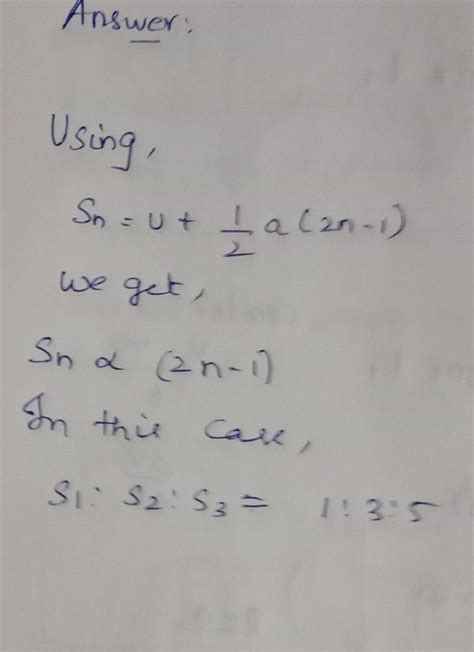 Answer:
Using,
Sn = u + 1/2 a (2n-1)
we get,
Sn ∝ (2n-1)
In this case,
S1: S2: S3 = 1:3:5